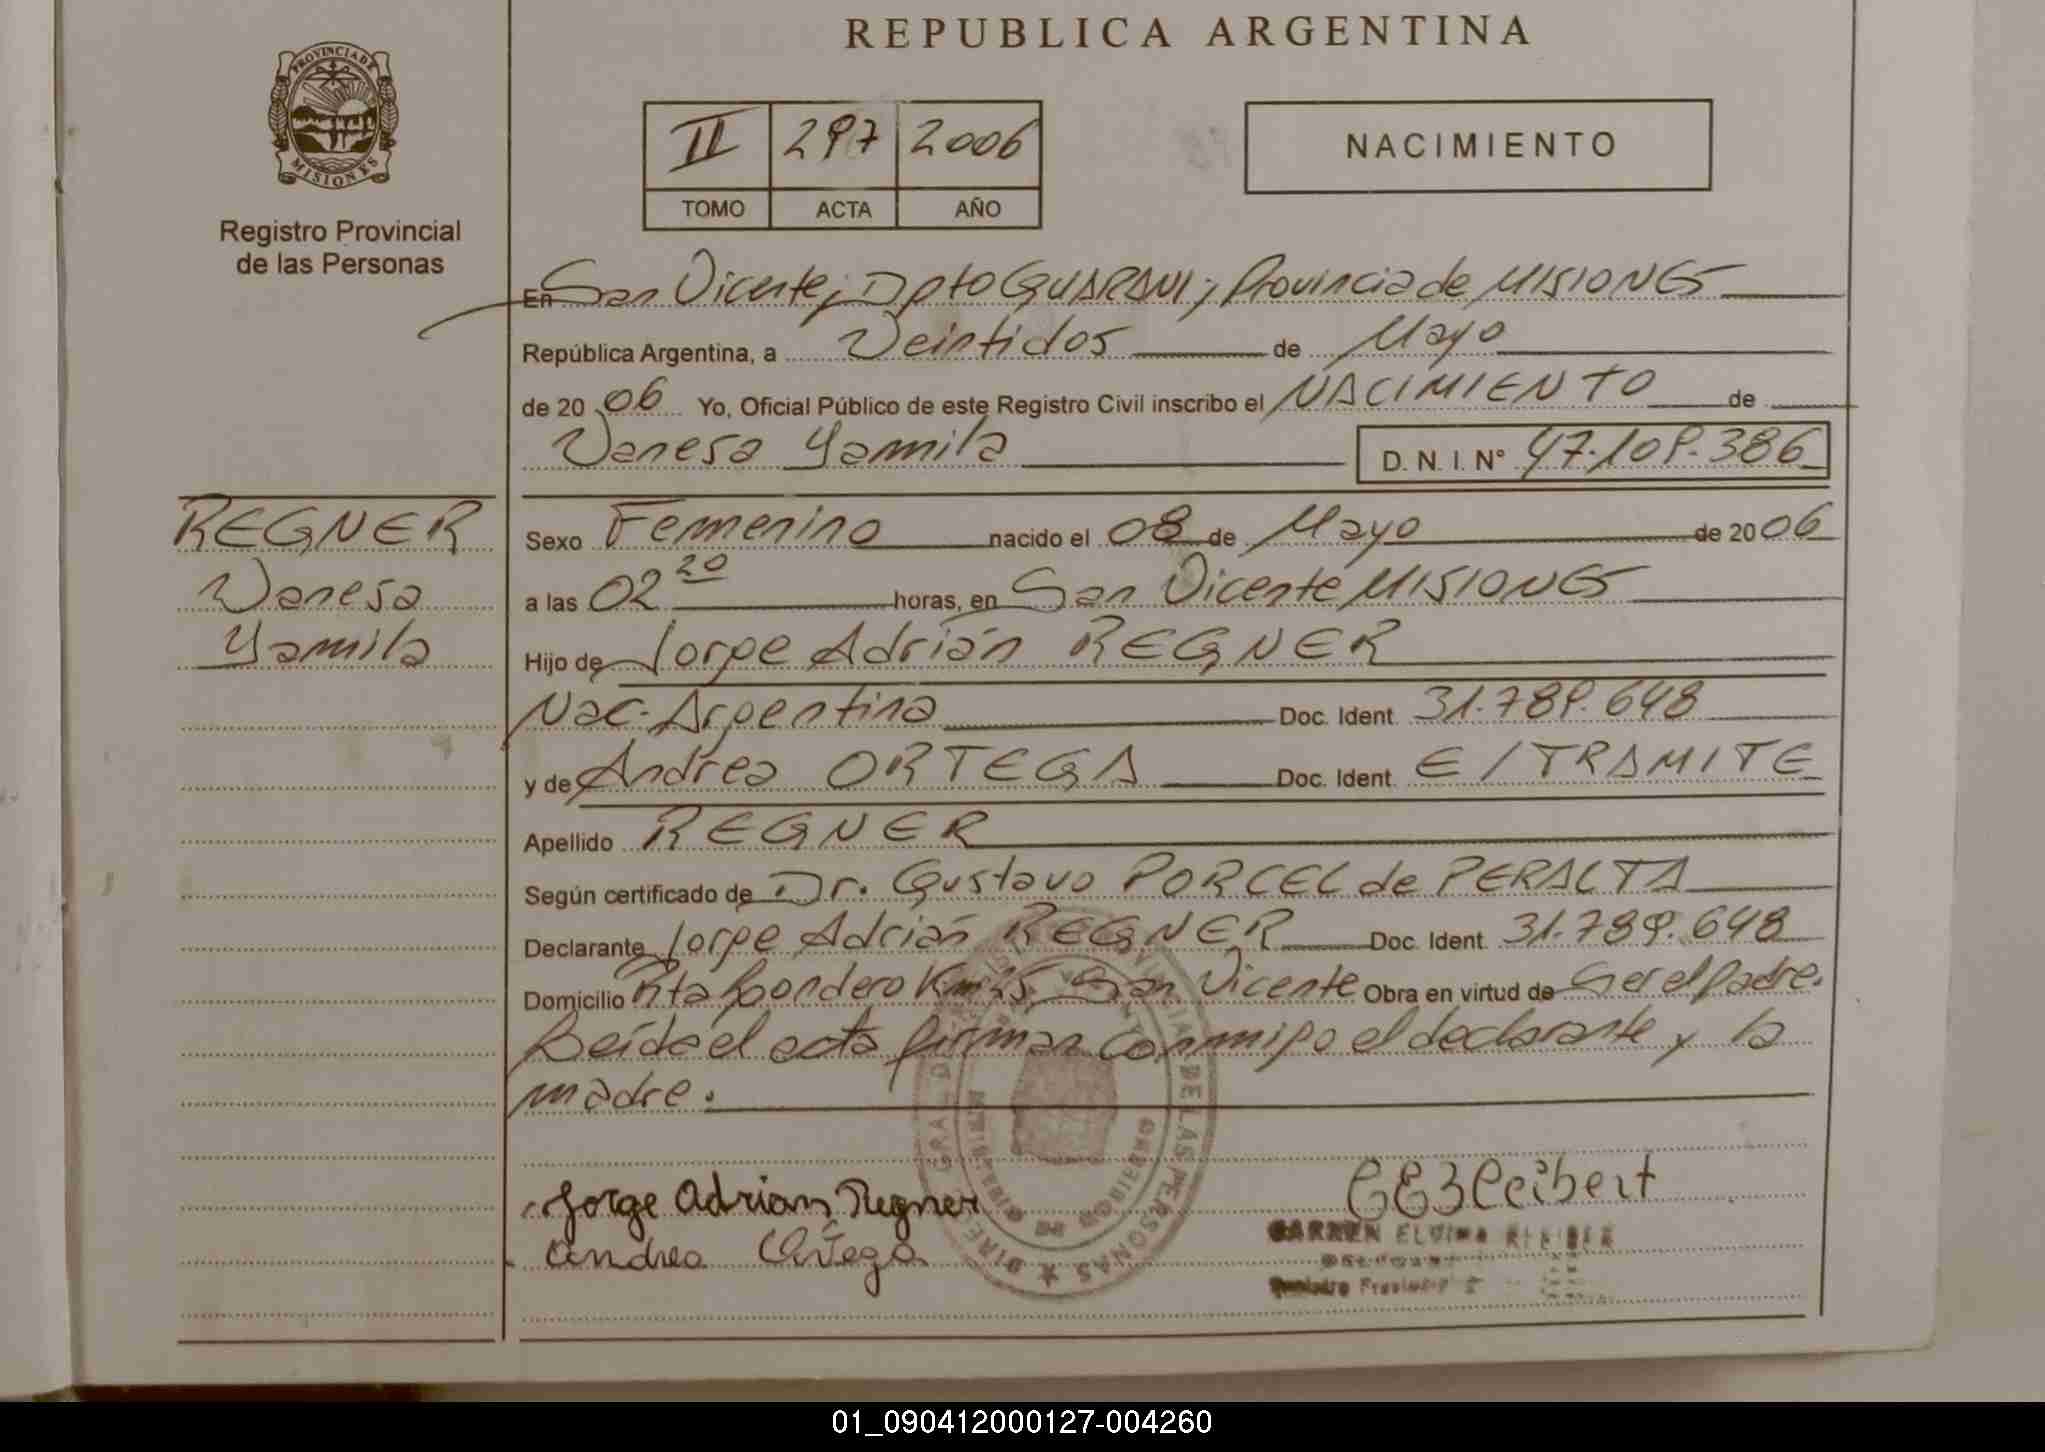 REPUBLICA ARGENTINA
PROVINCIA DE
MISIONES
Registro Provincial
de las Personas
II 297 2006
TOMO ACTA AÑO
NACIMIENTO
En San Vicente, Dpto GUARANI; Provincia de MISIONES
República Argentina, a Veintidos de Mayo
de 2006 Yo, Oficial Público de este Registro Civil inscribo el NACIMIENTO de
Vanesa Yamila D. N. I. N° 47.109.386
REGNER
Vanesa
Yamila
Sexo Femenino nacido el 08 de Mayo de 2006
a las 02 20 horas, en San Vicente MISIONES
Hijo de Jorge Adrián REGNER
Nac. Argentina Doc. Ident. 31.789.648
y de Andrea ORTEGA Doc. Ident. E/TRAMITE
Apellido REGNER
Según certificado de Dr. Gustavo PORCEL de PERALTA
Declarante Jorge Adrián REGNER Doc. Ident. 31.789.648
Domicilio San Vicente Obra en virtud de Ser el padre.
Leída el acta firman conmigo el declarante y la
madre.
Jorge Adrian Regner
Andrea Ortega
DE LAS PERSONAS
01_090412000127-004260